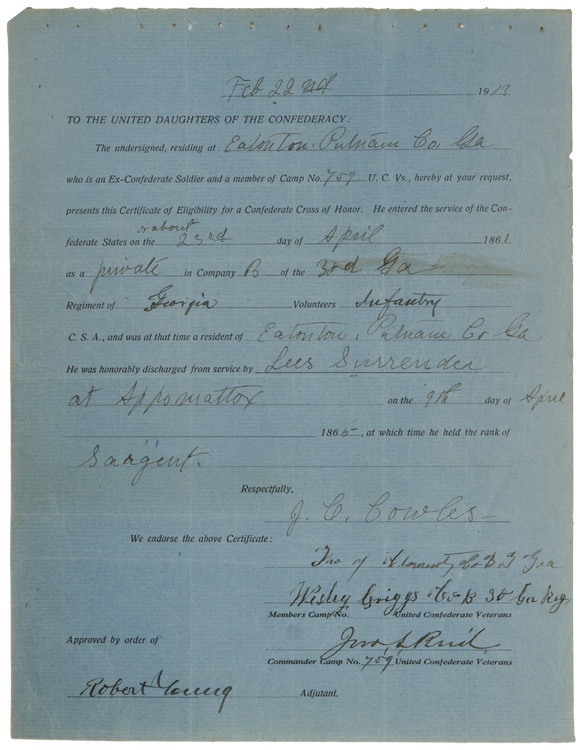 Feb 22nd 1913
TO THE UNITED DAUGHTERS OF THE CONFEDERACY:
The undersigned, residing at Eatonton, Putnam Co, Ga
who is an Ex-Confederate Soldier and a member of Camp No. 759 U. C. Vs., hereby at your request,
presents this Certificate of Eligibility for a Confederate Cross of Honor. He entered the service of the Con-
or about
federate States on the 23rd day of April 1861
as a private in Company B of the 3rd Ga
Regiment of Georgia Volunteers Infantry
C. S. A., and was at that time a resident of Eatonton, Putnam Co Ga
He was honorably discharged from service by Lees Surrender
at Appomattox on the 9th day of April
1865, at which time he held the rank of
Sargent.
Respectfully,
J. C. Cowles
We endorse the above Certificate:
Co B 3 Ga
Wesley Griggs Co B 3d Ga Reg
Members Camp No. United Confederate Veterans
Approved by order of Jno. S. Reid
Commander Camp No. 759 United Confederate Veterans
Robert Young Adjutant.